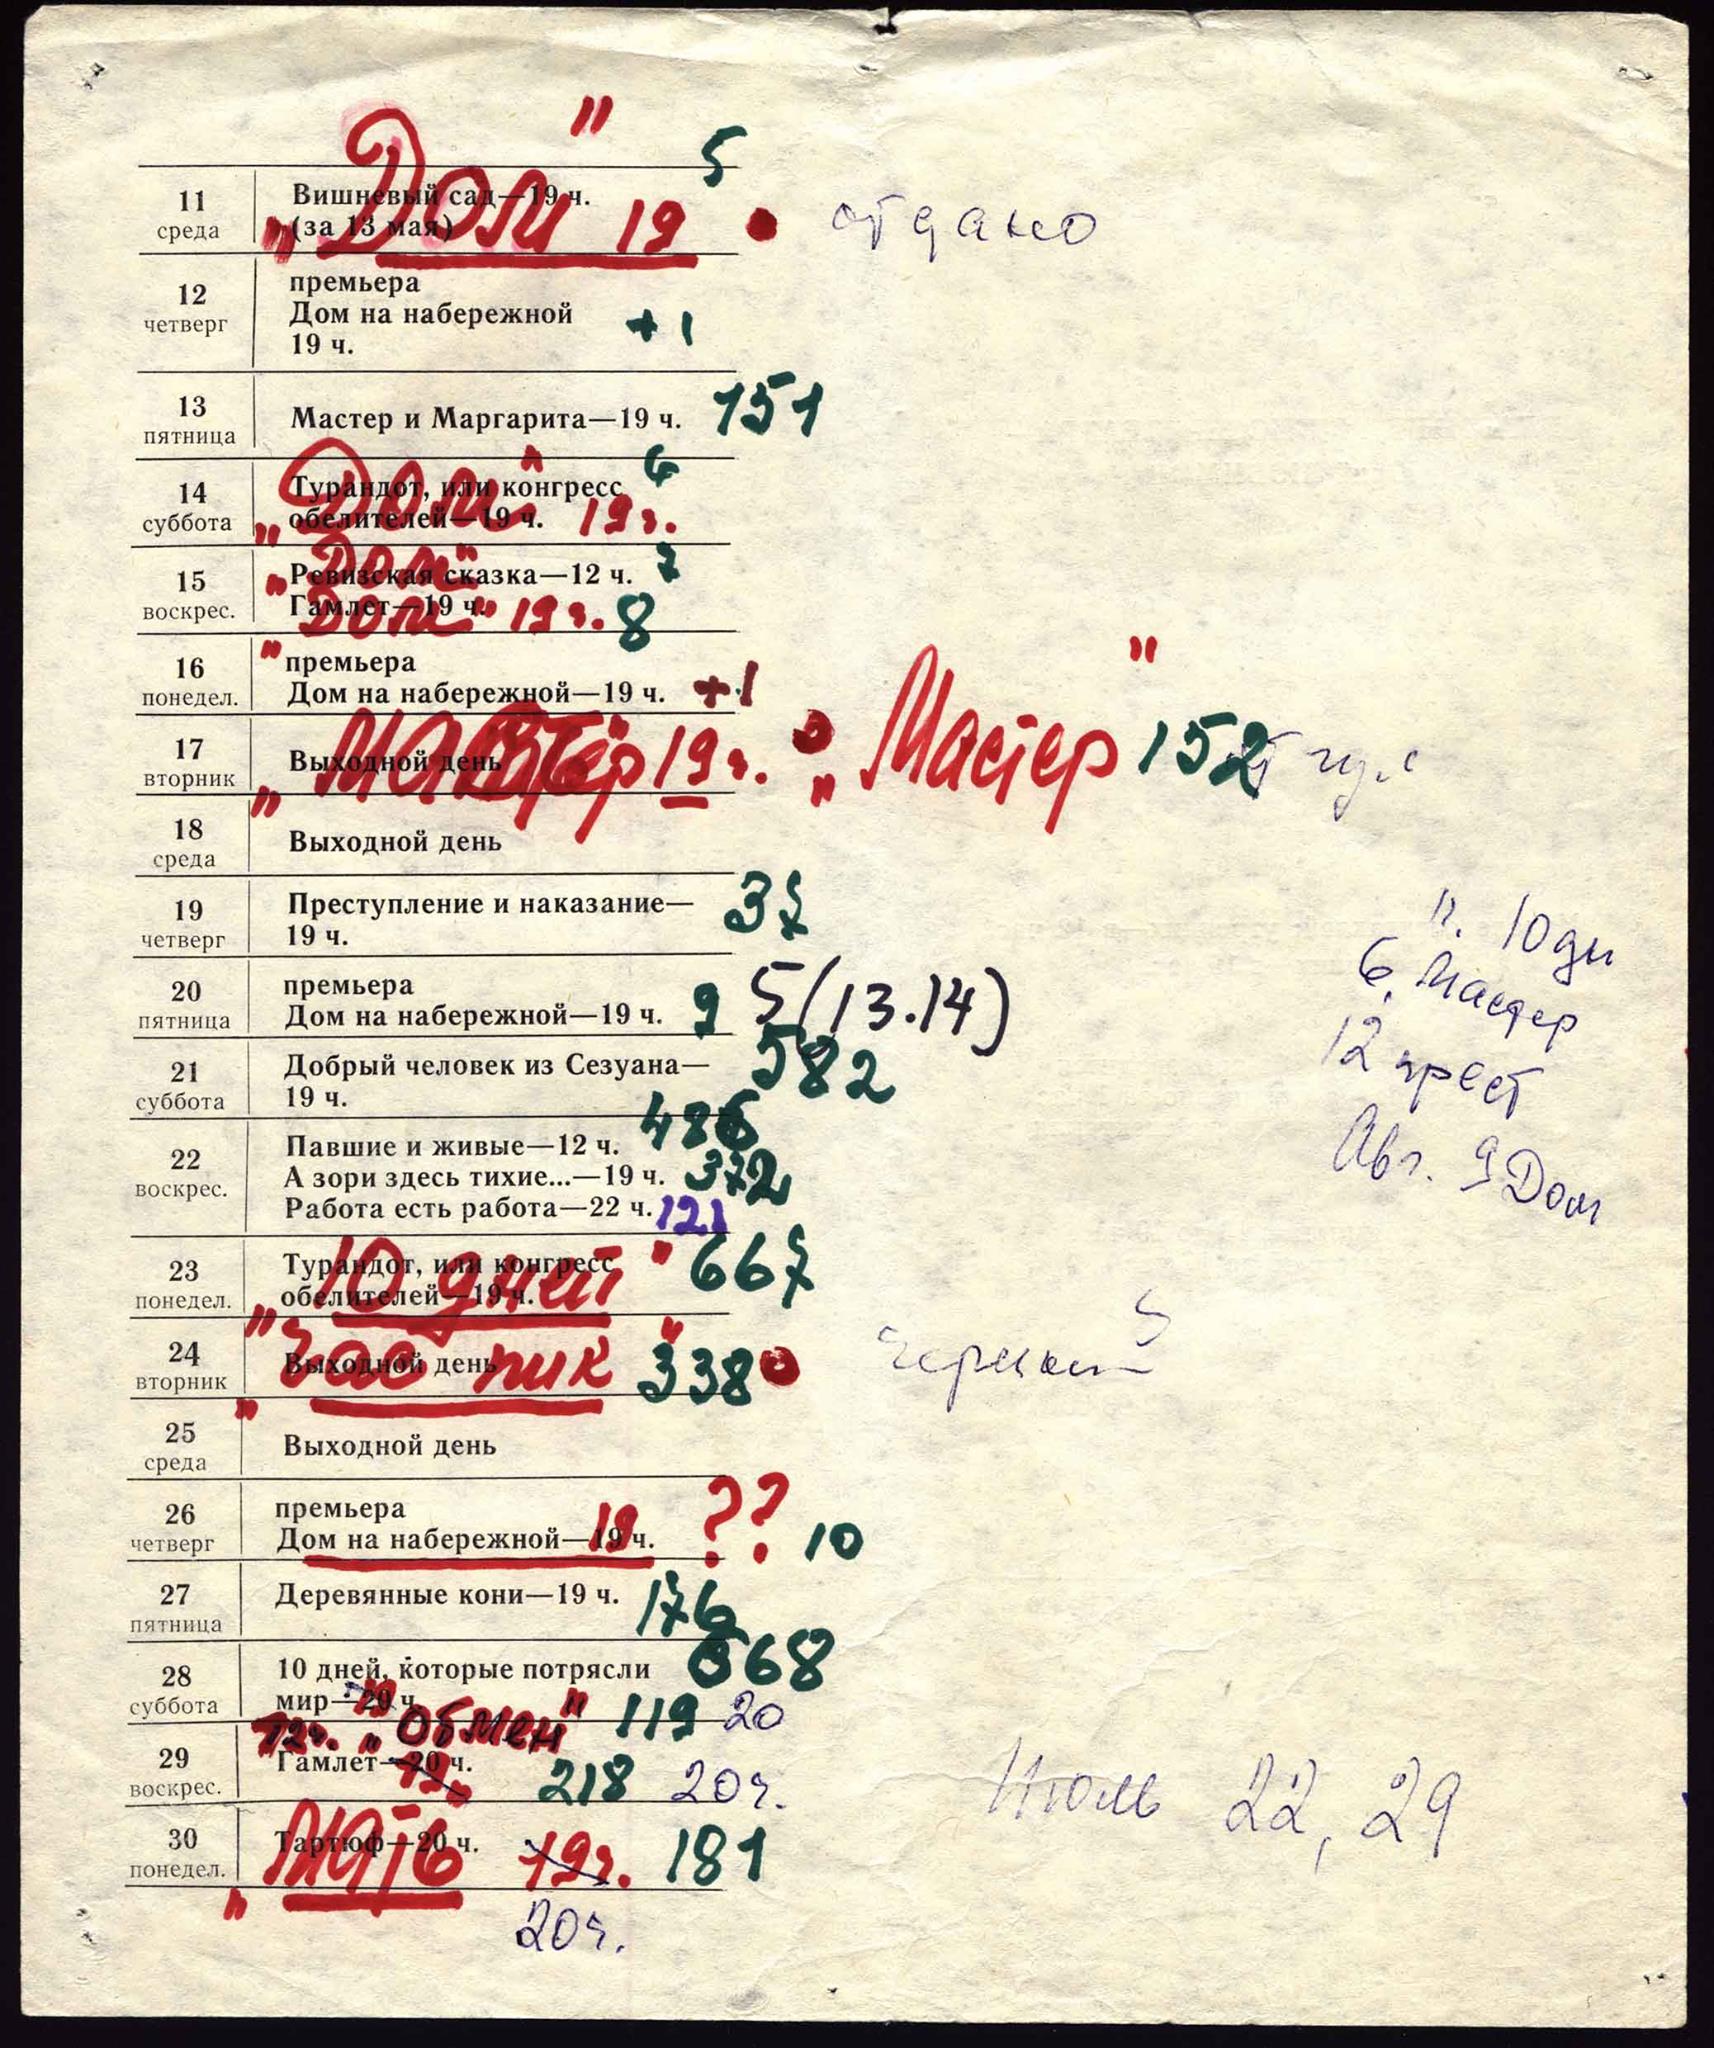 "Дом" 19 5
11 Вишневый сад—19 ч.
среда (за 13 мая) отдано
12 премьера
четверг Дом на набережной +1
19 ч.
13 Мастер и Маргарита—19 ч. 151
пятница
"Дом" 19 ч. 6
14 Турандот, или конгресс
суббота обелителей—19 ч.
"Дом" 7
15 Ревизская сказка—12 ч.
воскрес. Гамлет—19 ч.
"Дом" 19 ч. 8
16 премьера
понедел. Дом на набережной—19 ч. +1
17 Выходной день
вторник "Мастер" 19 ч. "Мастер" 152
18 Выходной день
среда
19 Преступление и наказание— 37
четверг 19 ч.
20 премьера
пятница Дом на набережной—19 ч. 9 5 (13.14)
21 Добрый человек из Сезуана— 582
суббота 19 ч.
22 Павшие и живые—12 ч. 486
воскрес. А зори здесь тихие...—19 ч. 372
Работа есть работа—22 ч. 121
11. 10 дн
6. Мастер
12 прест
Авг. 9 Дом
23 Турандот, или конгресс
понедел. обелителей—19 ч.
"10 дней" 667
24 Выходной день
вторник "Час пик" 338
25 Выходной день
среда
26 премьера
четверг Дом на набережной—19 ч. 19 ?? 10
27 Деревянные кони—19 ч. 176
пятница
28 10 дней, которые потрясли 668
суббота мир—20 ч. 20
12 ч. "Обмен" 119
29 Гамлет—20 ч. 218 20 ч.
воскрес.
30 Тартюф—20 ч. 19 ч. 181
понедел. "Мать"
20 ч.
Июль 22, 29